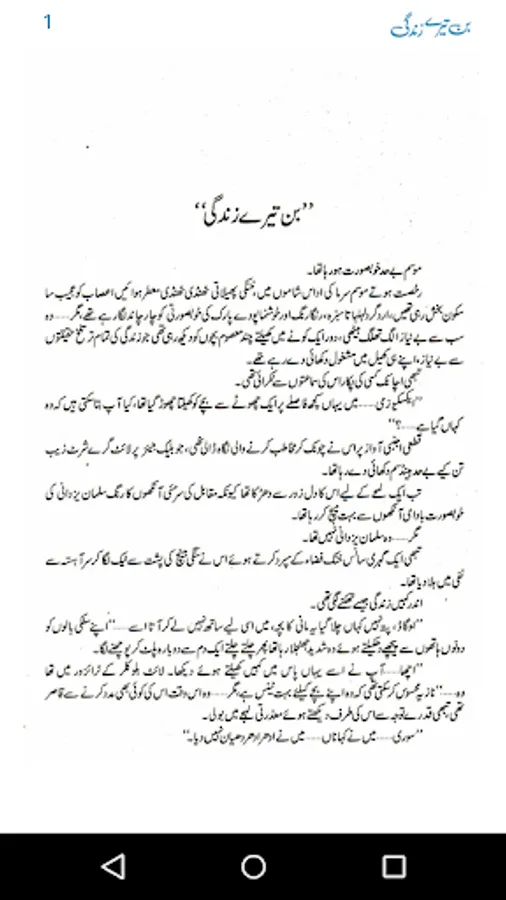 1
بن تیرے زندگی
”بن تیرے زندگی“
موسم بے حد خوبصورت ہو رہا تھا۔
رخصت ہوتے موسم سرما کی اداس شاموں میں، خنکی پھیلاتی ٹھنڈی ٹھنڈی معطر ہوائیں اعصاب کو عجیب سا
سکون بخش رہی تھیں، اردگرد لہلہاتا سبزہ، رنگا رنگ اور خوشنما پودے پارک کی خوبصورتی کو چار چاند لگا رہے تھے، مگر...... وہ
سب سے بے نیاز الگ تھلگ بیٹھی، دور ایک کونے میں کھیلتے چند معصوم بچوں کو دیکھ رہی تھی جو زندگی کی تمام تر تلخ حقیقتوں
سے بے نیاز، اپنے ہی کھیل میں مشغول دکھائی دے رہے تھے۔
تبھی اچانک کسی کی پکار اس کی سماعتوں سے ٹکرائی تھی۔
”ایکسکیوزمی...... میں یہاں کچھ فاصلے پر ایک چھوٹے سے بچے کو کھیلتا چھوڑ گیا تھا، کیا آپ بتا سکتی ہیں کہ وہ
کہاں گیا ہے......؟“
قطعی اجنبی آواز پر اس نے چونک کر مخاطب کرنے والی نگاہ ڈالی تھی، جو بلیک پینٹ پر لائٹ گرے شرٹ زیب
تن کیے بے حد ہینڈسم دکھائی دے رہا تھا۔
تب ایک لمحے کے لیے اس کا دل زور سے دھڑکا تھا کیونکہ مقابل کی سرمئی آنکھوں کا رنگ سلمان یزدانی کی
خوبصورت بادامی آنکھوں سے بہت میچ کر رہا تھا۔
مگر...... وہ سلمان یزدانی نہیں تھا۔
تبھی ایک گہری سانس خنک فضاء کے سپرد کرتے ہوئے اس نے سنگی بینچ کی پشت سے ٹیک لگا کر سر آہستہ سے
نفی میں ہلا دیا تھا۔
اندر کہیں زندگی جیسے تھکنے لگی تھی۔
”اوگاڈ، پتہ نہیں کہاں چلا گیا یہ مانی کا بچہ، میں اسی لیے ساتھ نہیں لے کر آتا اسے......“ اپنے سلکی بالوں کو
دونوں ہاتھوں سے پیچھے دھکیلتے ہوئے وہ شدید جھنجلا رہا تھا پھر چلتے چلتے ایک دم سے دوبارہ پلٹ کر پوچھنے لگا۔
”اچھا...... آپ نے اسے یہاں پاس میں کہیں کھیلتے ہوئے دیکھا۔ لائٹ بلو کلر کے ٹراؤزر میں تھا
وہ......“ نازیہ محسوس کر سکتی تھی کہ وہ اپنے بچے کیلئے بہت ٹینس ہے، مگر...... وہ اس وقت اس کی کوئی بھی مدد کرنے سے قاصر
تھی، تبھی قدرے توجہ سے اس کی طرف دیکھتے ہوئے معذرتی لہجے میں بولی۔
”سوری...... میں نے کہا ناں...... میں نے ادھر ادھر دھیان نہیں دیا۔“